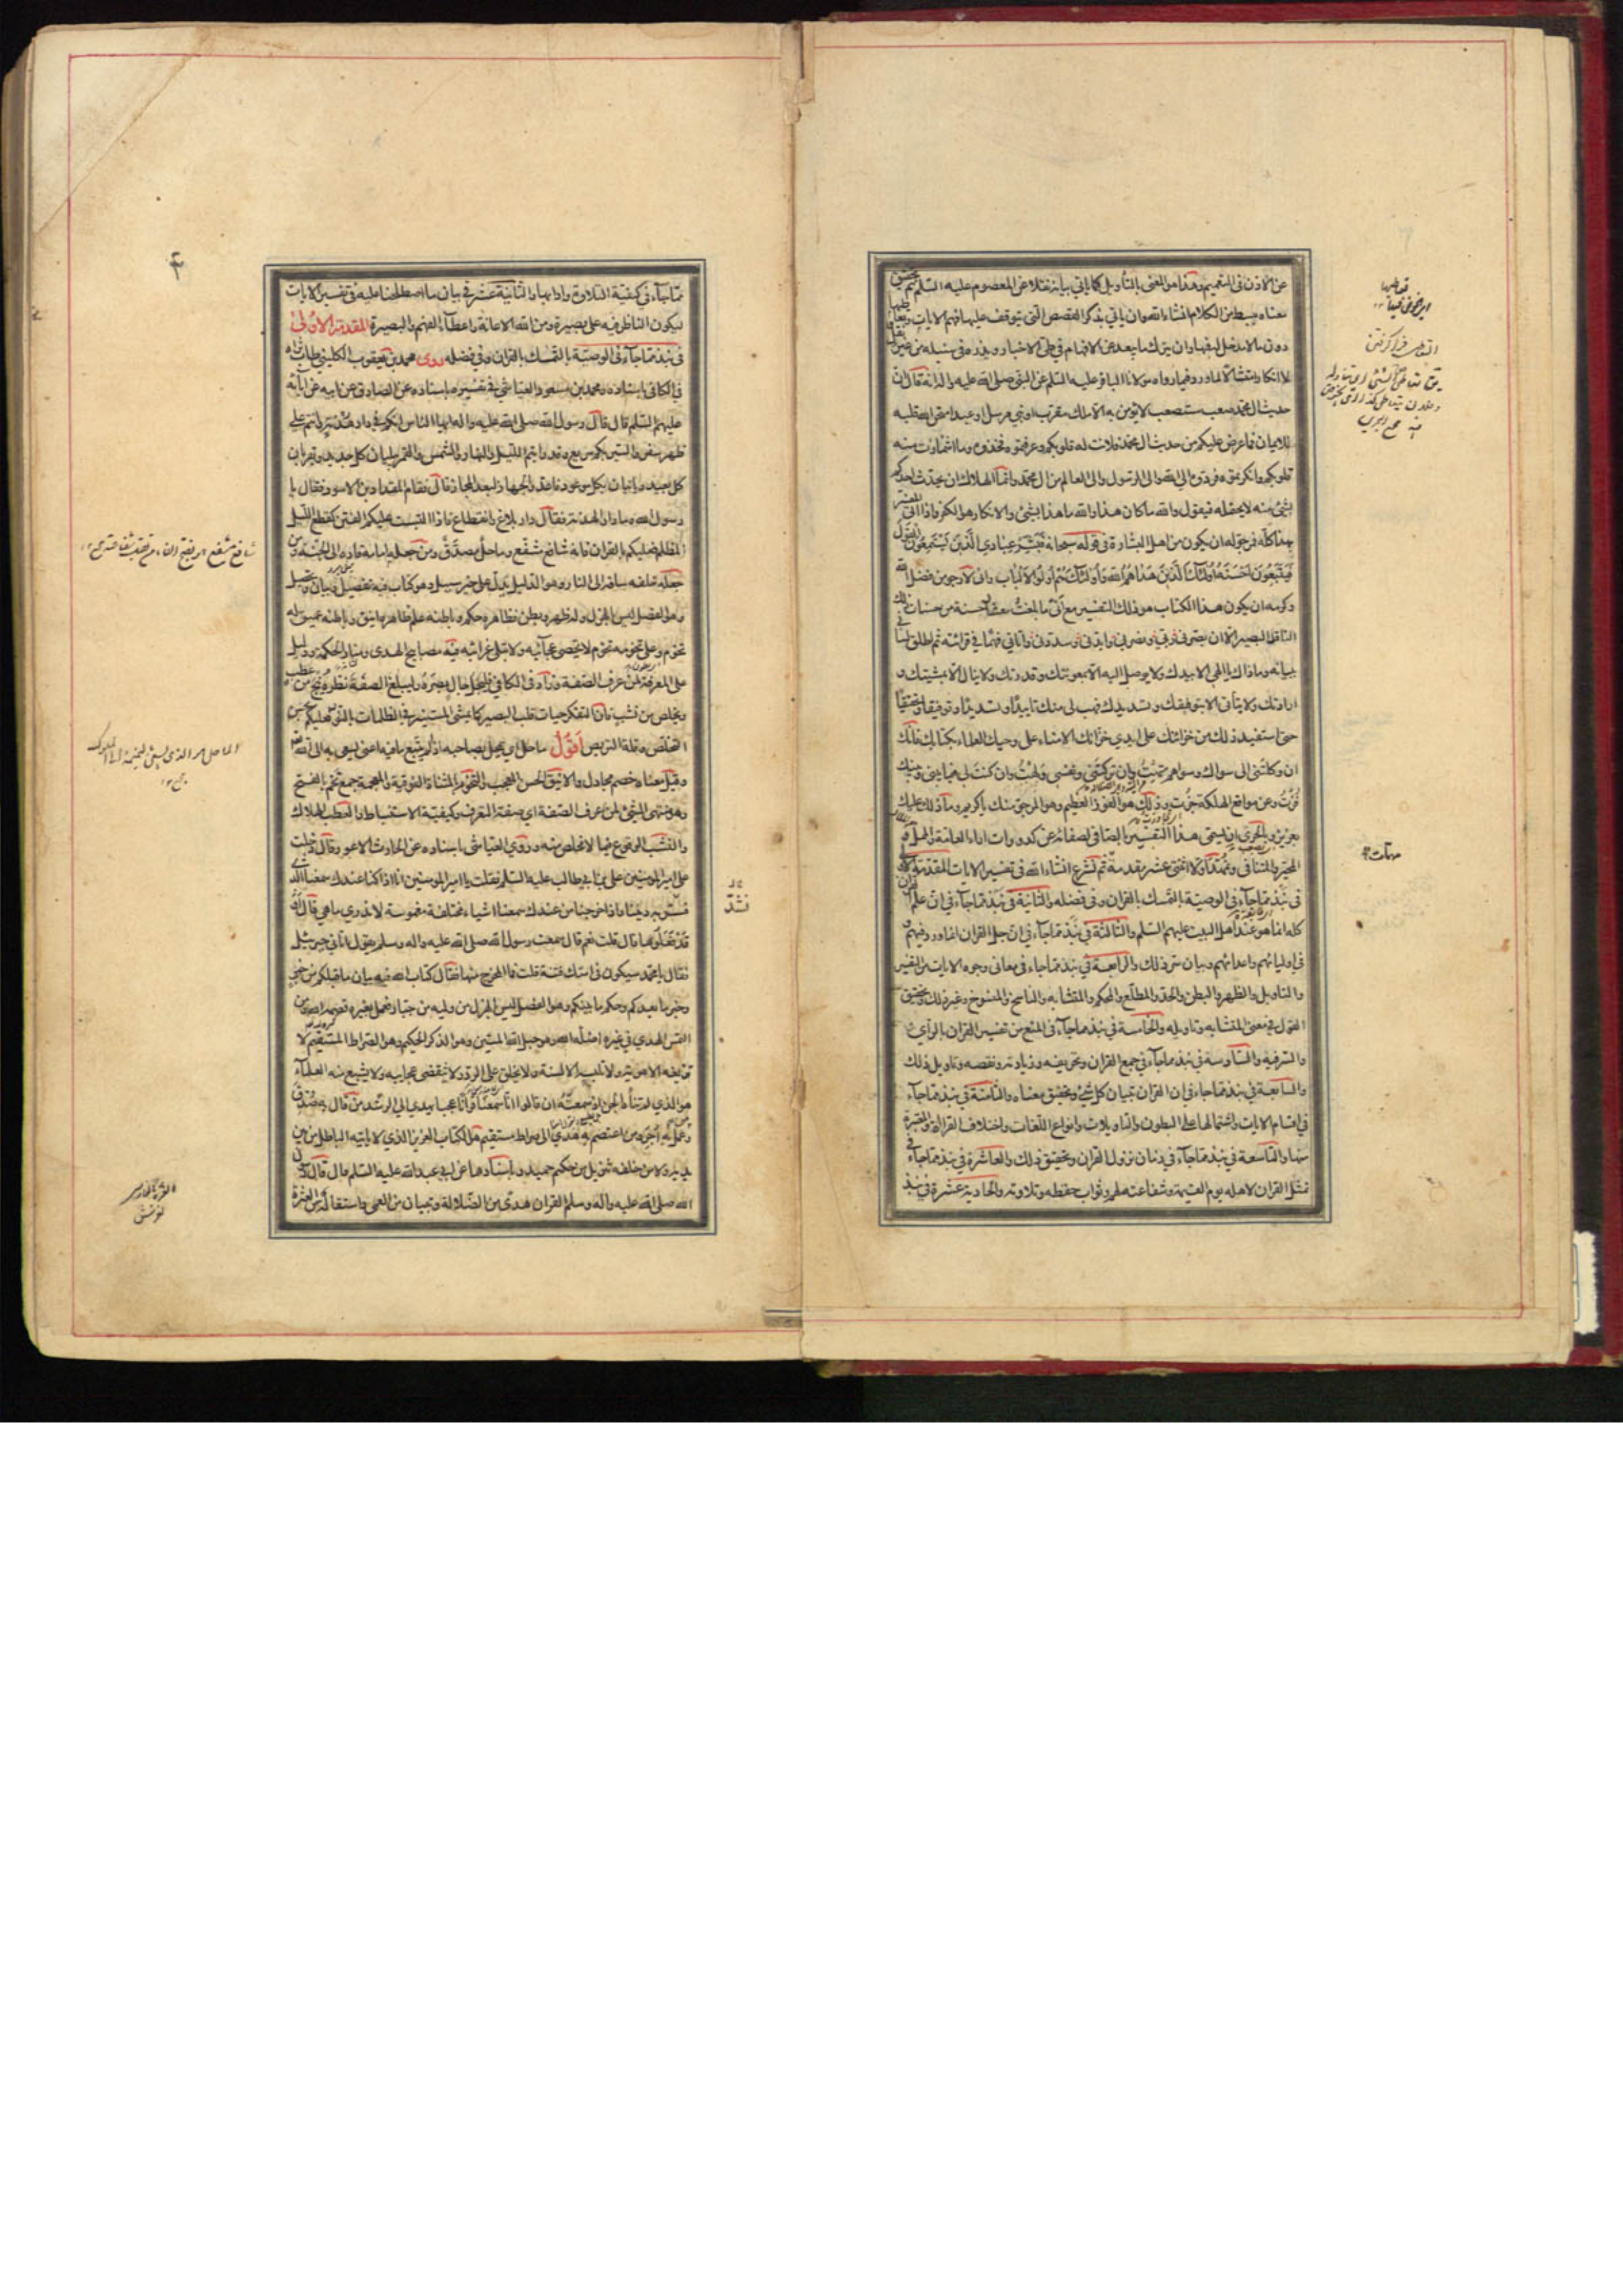 عن الاذن في التعميم وهذا هو المعنى بالتأويل كما يأتي بيانه نقلا عن المعصوم عليه السلم ثم تحقيق
معناه ببسط من الكلام انشاء الله وان يأتي بذكر القصص التي يتوقف عليها فهم الايات
دون ما لا مدخل له فيها وان يترك ما يبعد عن الافهام في طي الاخبار ويذره في سنبله من غير
الانكار امتثالا لما ورد فيما رواه مولانا الباقر عليه السلم عن النبي صلى الله عليه واله انه قال ان
حديث ال محمد صعب مستصعب لا يؤمن به الا ملك مقرب او نبي مرسل او عبد امتحن الله قلبه
للايمان فما عرض عليكم من حديث ال محمد فلانت له قلوبكم وعرفتموه فخذوه وما اشمأزت منه
قلوبكم وانكرتموه فردوه الى الله والى الرسول والى العالم من ال محمد وانما الهلاك ان يحدث احدكم
بشئ منه لا يحتمله فيقول والله ما كان هذا والله ما هذا بشئ والانكار هو الكفر فاذا اتى المفسر
بهذا كله فرجوله ان يكون من اهل البشارة في قوله سبحانه فبشر عبادي الذين يستمعون القول
فيتبعون احسنه اولئك الذين هداهم الله واولئك هم اولوا الالباب واني لارجو من فضل الله
وكرمه ان يكون هذا الكتاب هو ذلك التفسير مع
الناظر البصير الا ان يبصرني ربي وينصرني وايدني وسددني واتاني فهما في قرائته ثم اطلق لساني
ببيانه وما ذاك يا الهي الا بيدك ولا يوصل اليه الا بمعونتك وقدرتك ولا ينال الا بمشيتك و
ارادتك ولا يتأتى الا بتوفيقك وتسديدك فهب لي منك تأييدا وتسديدا وتوفيقا وتحقيقا
حتى استفيد ذلك من خزائنك على ايدي خزانك الامناء على وحيك العلماء بكتابك فانك
ان وكلتني الى سواك وسواهم تهت وان تركتني ونفسي ولهت وان كنت لي فيما بيني وبينك
فزت وعن مواقع الهلكة جزت وذلك هو الفوز العظيم وهو المرجو منك يا كريم وما ذلك عليك
بعزيز وبالحري ان يسمى هذا التفسير بالصافي لصفائه عن كدورات اراء العامة والممل و
المحير والمتنافي ونمهد اولا اثنتي عشرة مقدمة ثم نشرع انشاء الله في تفسير الايات المقدمة الاولى
في نبذ مما جاء في الوصية بالتمسك بالقران وفي فضله والثانية في نبذ مما جاء في ان علم القران
كله انما هو عند اهل البيت عليهم السلم والثالثة في نبذ مما جاء في ان جل القران انما ورد فيهم و
في اوليائهم واعدائهم وبيان سر ذلك والرابعة في نبذ مما جاء في معاني وجوه الايات من التفسير
والتاويل والظهر والبطن والحد والمطلع والمحكم والمتشابه والناسخ والمنسوخ وغير ذلك وتحقيق
القول في معنى المتشابه وتاويله والخامسة في نبذ مما جاء في المنع من تفسير القران بالرأي
والسر فيه والسادسة في نبذ مما جاء في جمع القران وتحريفه وزيادته ونقصه وتاويل ذلك
والسابعة في نبذ مما جاء في ان القران تبيان كل شئ وتحقيق معناه والثامنة في نبذ مما جاء
في اقسام الايات واشتمالها على البطون والتاويلات وانواع اللغات واختلاف القراات والمعتبرة
منها والتاسعة في نبذ مما جاء في زمان نزول القران وتحقيق ذلك والعاشرة في نبذ مما جاء في
تمثل القران لاهله يوم القيمة وشفاعته لهم وثواب حفظه وتلاوته والحادية عشرة في نبذ
مما جاء في كيفية التلاوة وادابها والثانية عشر في بيان ما اصطلحنا عليه في تفسير الايات
ليكون الناظر فيه على بصيرة ومن الله الاعانة واعطاء الفهم والبصيرة المقدمة الاولى
في نبذ مما جاء في الوصية بالتمسك بالقران وفي فضله روى محمد بن يعقوب الكليني طاب ثراه
في الكافي باسناده ومحمد بن مسعود العياشي في تفسيره باسناده عن الصادق عن ابيه عن ابائه
عليهم السلم قال قال رسول الله صلى الله عليه واله ايها الناس انكم في دار هدنة وانتم على
ظهر سفر والسير بكم سريع وقد رايتم الليل والنهار والشمس والقمر يبليان كل جديد ويقربان
كل بعيد وياتيان بكل موعود فاعدوا الجهاز لبعد المجاز قال فقام المقداد بن الاسود فقال يا
رسول الله وما دار الهدنة فقال دار بلاغ وانقطاع فاذا التبست عليكم الفتن كقطع الليل
المظلم فعليكم بالقران فانه شافع مشفع وماحل مصدق ومن جعله امامه قاده الى الجنة ومن
جعله خلفه ساقه الى النار وهو الدليل يدل على خير سبيل وهو كتاب فيه تفصيل وبيان وتحصيل
وهو الفصل ليس بالهزل وله ظهر وبطن فظاهره حكم وباطنه علم ظاهره انيق وباطنه عميق له
تخوم وعلى تخومه تخوم لا تحصى عجائبه ولا تبلى غرائبه فيه مصابيح الهدى ومنار الحكمة ودليل
على المعرفة لمن عرف الصفة وزاد في الكافي فليجل جال بصره وليبلغ الصفة نظره ينج من عطب
ويخلص من نشب فان التفكر حيات قلب البصير كما يمشي المستنير في الظلمات بالنور فعليكم بحسن
التخلص وقلة التربص اقول ماحل اي يمحل بصاحبه اذا لم يتبع ما فيه اعني يسعى به الى الله
وقيل معناه خصم مجادل والانيق الحسن المعجب والتخوم بالمثناة الفوقية والمعجمة جمع تخم بالفتح
وهو منتهى الشئ لمن عرف الصفة اي صفة التعرف وكيفية الاستنباط والعطب الهلاك
والنشب الوقوع فيما لا مخلص منه وروى العياشي باسناده عن الحارث الاعور قال دخلت
على امير المؤمنين علي بن ابي طالب عليه السلم فقلت يا امير المؤمنين انا اذا كنا عندك سمعنا الذي
نسد به ديننا واذا خرجنا من عندك سمعنا اشياء مختلفة مغموسة لا ندري ما هي قال او
قد فعلوها قال قلت نعم قال سمعت رسول الله صلى الله عليه واله وسلم يقول اتاني جبرئيل
فقال يا محمد سيكون في امتك فتنة قلت فما المخرج منها فقال كتاب الله فيه بيان ما قبلكم من خبر
وخبر ما بعدكم وحكم ما بينكم وهو الفصل ليس بالهزل من وليه من جبار فعمل بغيره قصمه الله ومن
التمس الهدى في غيره اضله الله وهو حبل الله المتين وهو الذكر الحكيم وهو الصراط المستقيم لا
تزيغه الاهوية ولا تلبسه الالسنة ولا يخلق على الرد ولا تنقضي عجايبه ولا يشبع منه العلماء
هو الذي لم تناه الجن اذ سمعته ان قالوا انا سمعنا قرانا عجبا يهدي الى الرشد من قال به صدق
ومن عمل به اجر ومن اعتصم به هدي الى صراط مستقيم هو الكتاب العزيز الذي لا ياتيه الباطل من بين
يديه ولا من خلفه تنزيل من حكيم حميد وباسنادهما عن ابي عبد الله عليه السلم قال قال رسول
الله صلى الله عليه واله وسلم القران هدى من الضلالة وتبيان من العمى واستقالة من العثرة